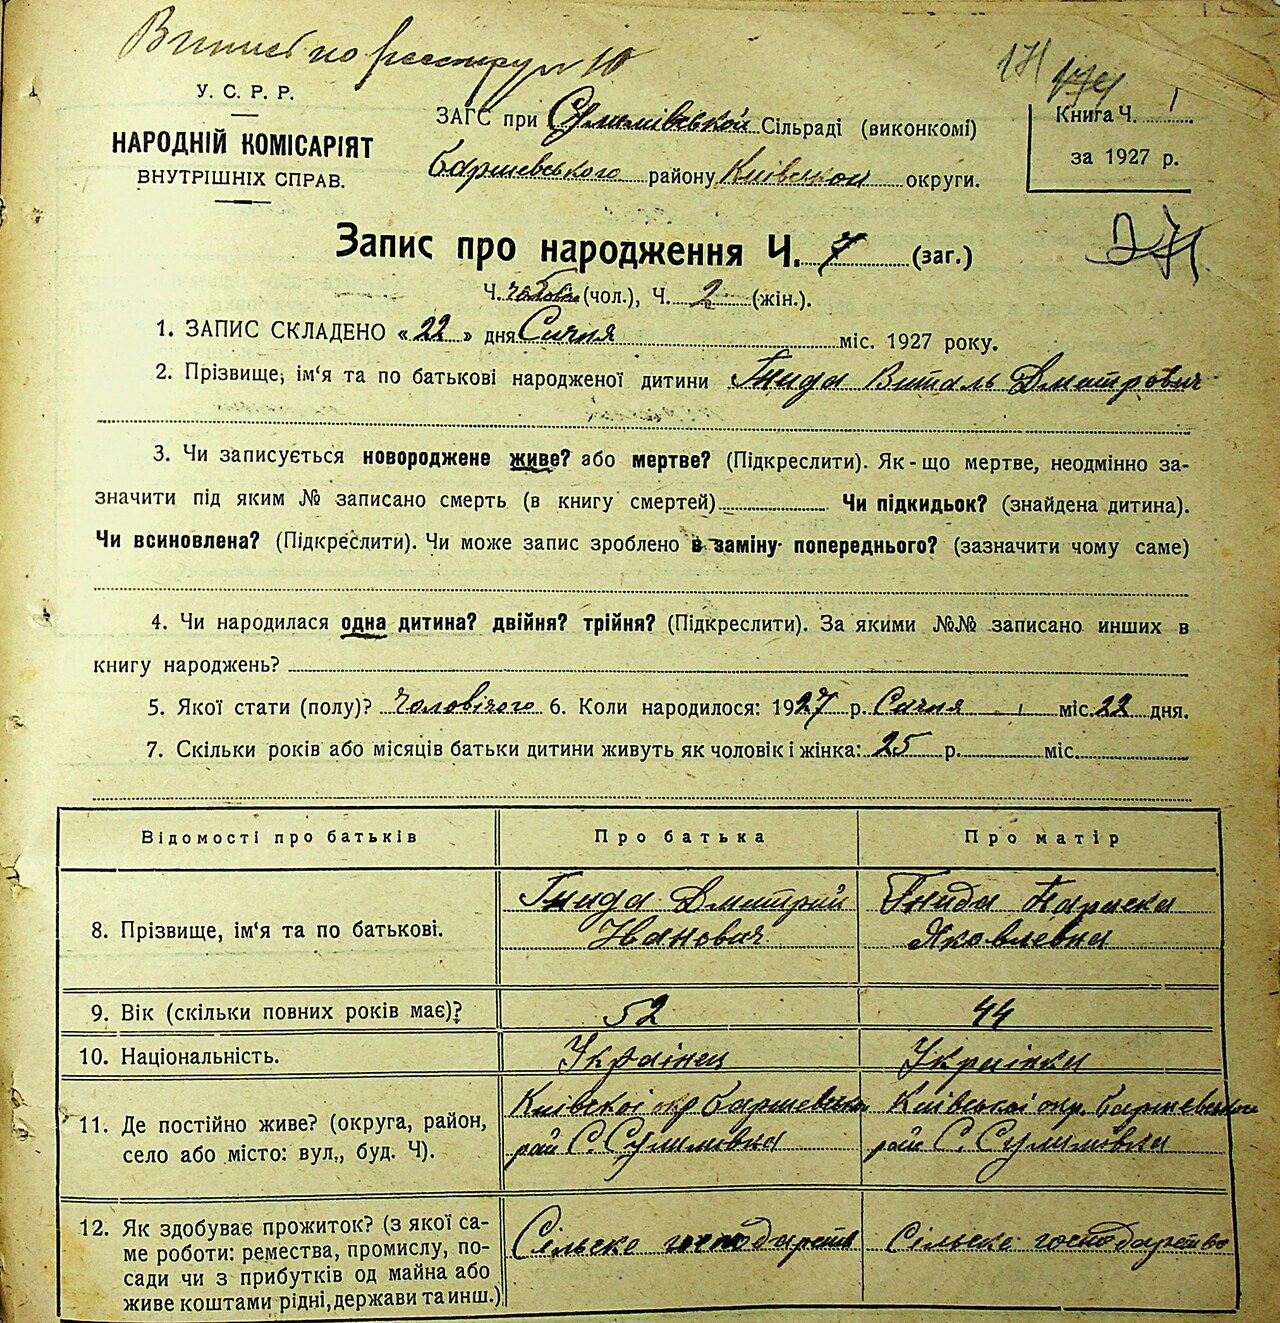 Випись по реестру № 10
171 174
У. С. Р. Р.
НАРОДНІЙ КОМІСАРІЯТ
ВНУТРІШНІХ СПРАВ.
ЗАГС при Сулимівській Сільраді (виконкомі)
Баришевського району Київської округи.
Книга Ч. 1
за 1927 р.
Запис про народження Ч. 7 (заг.)
271
Ч. (чол.), Ч. 2 (жін.).
1. ЗАПИС СКЛАДЕНО «22» дня Січня міс. 1927 року.
2. Прізвище, ім'я та по батькові народженої дитини Гнида Виталь Дматрович
3. Чи записується новороджене живе? або мертве? (Підкреслити). Як-що мертве, неодмінно за-
значити під яким № записано смерть (в книгу смертей) Чи підкидьок? (знайдена дитина).
Чи всиновлена? (Підкреслити). Чи може запис зроблено в заміну попереднього? (зазначити чому саме)
4. Чи народилася одна дитина? двійня? трійня? (Підкреслити). За якими №№ записано инших в
книгу народжень?
5. Якої стати (полу)? Чоловічого 6. Коли народилося: 1927 р. Січня міс. 22 дня.
7. Скільки років або місяців батьки дитини живуть як чоловік і жінка: 25 р. міс.
Відомості про батьків Про батька Про матір
8. Прізвище, ім'я та по батькові. Гнида Дматрий Іванович Гнида Параска Яковлевна
9. Вік (скільки повних років має)? 52 44
10. Національність. Українец Українка
11. Де постійно живе? (округа, район,
село або місто: вул., буд. Ч).
Київскоі окр. Баришевськ
рай С. Сулимовка
Київськоі окр. Баришевського
рай С. Сулимовка
12. Як здобуває прожиток? (з якої са-
ме роботи: ремества, промислу, по-
сади чи з прибутків од майна або
живе коштами рідні, держави та инш.)
Сільске господарств
Сільске господарство